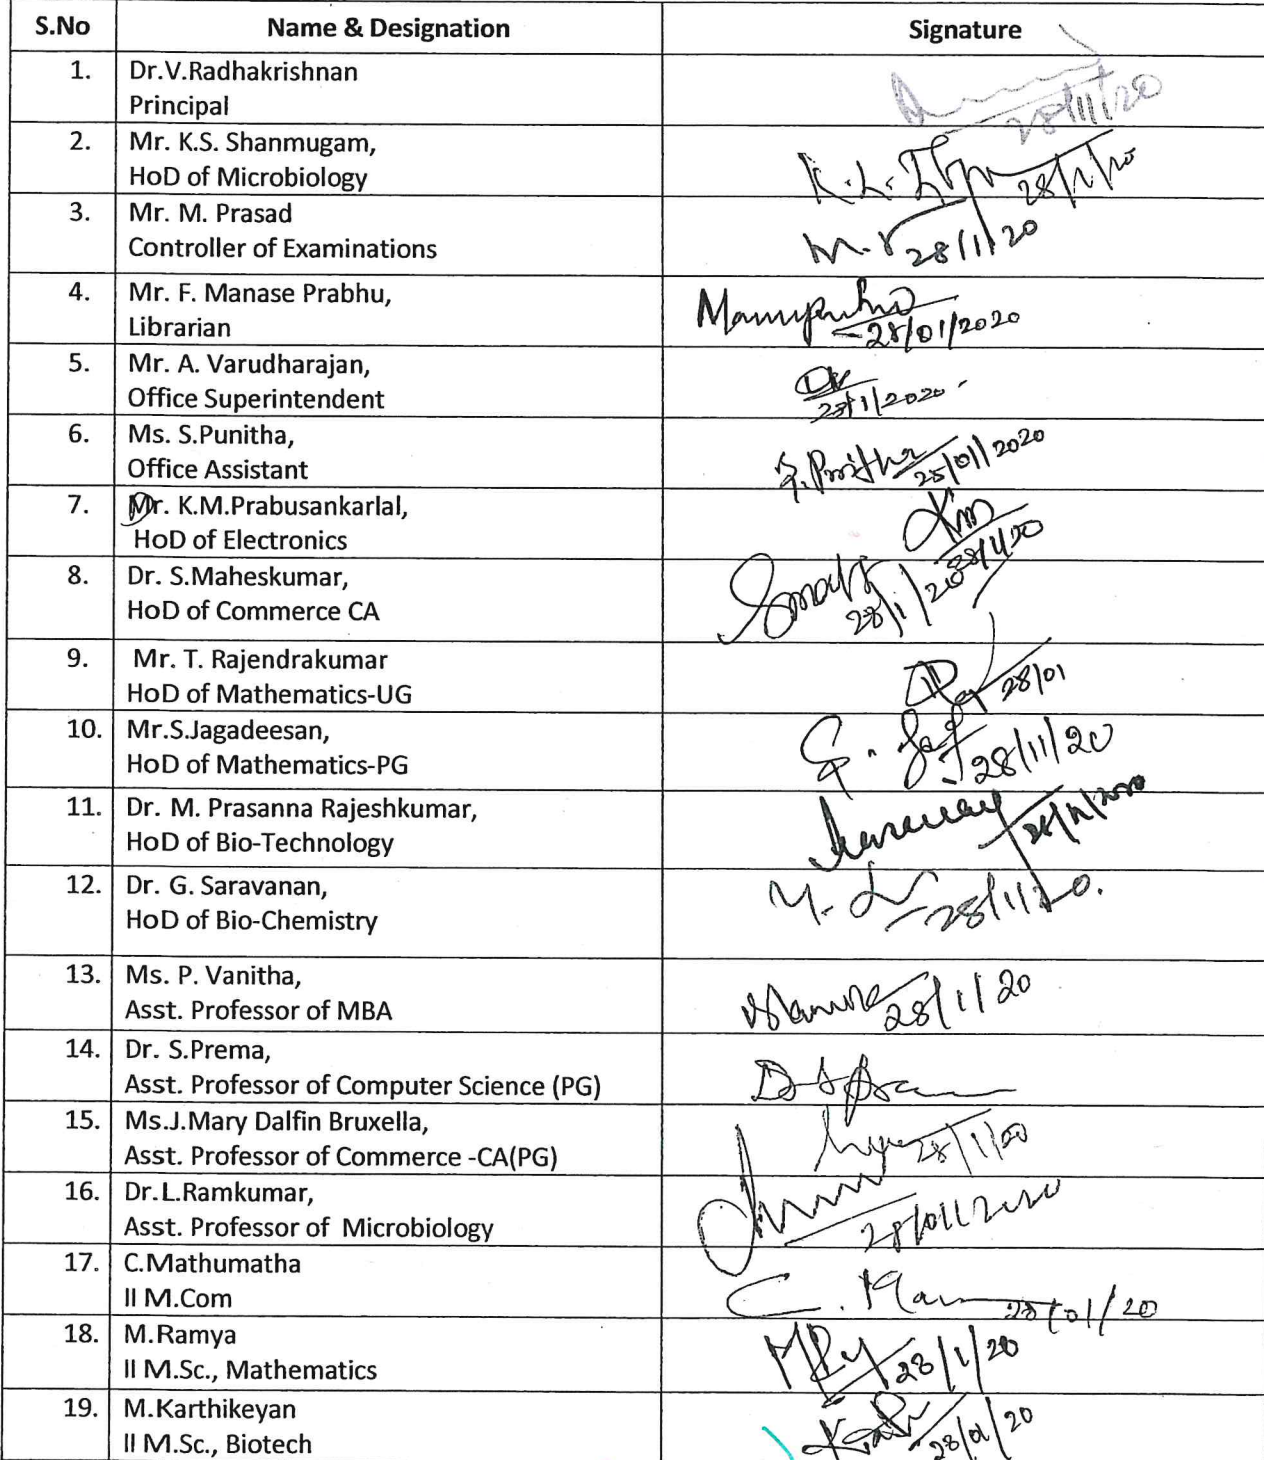 S.No Name & Designation Signature
1. Dr.V.Radhakrishnan
Principal
28/11/20
2. Mr. K.S. Shanmugam,
HoD of Microbiology
28/1/20
3. Mr. M. Prasad
Controller of Examinations
28/1/20
4. Mr. F. Manase Prabhu,
Librarian
28/01/2020
5. Mr. A. Varudharajan,
Office Superintendent
28/1/2020
6. Ms. S.Punitha,
Office Assistant
25/01/2020
7. Mr. K.M.Prabusankarlal,
HoD of Electronics
28/1/20
8. Dr. S.Maheskumar,
HoD of Commerce CA
28/1/20
9. Mr. T. Rajendrakumar
HoD of Mathematics-UG
28/01
10. Mr.S.Jagadeesan,
HoD of Mathematics-PG
28/11/20
11. Dr. M. Prasanna Rajeshkumar,
HoD of Bio-Technology
12. Dr. G. Saravanan,
HoD of Bio-Chemistry
28/1/20.
13. Ms. P. Vanitha,
Asst. Professor of MBA
28/1/20
14. Dr. S.Prema,
Asst. Professor of Computer Science (PG)
15. Ms.J.Mary Dalfin Bruxella,
Asst. Professor of Commerce -CA(PG)
28/1/20
16. Dr.L.Ramkumar,
Asst. Professor of Microbiology
28/01/2020
17. C.Mathumatha
II M.Com
28/01/20
18. M.Ramya
II M.Sc., Mathematics
28/1/20
19. M.Karthikeyan
II M.Sc., Biotech
28/01/20